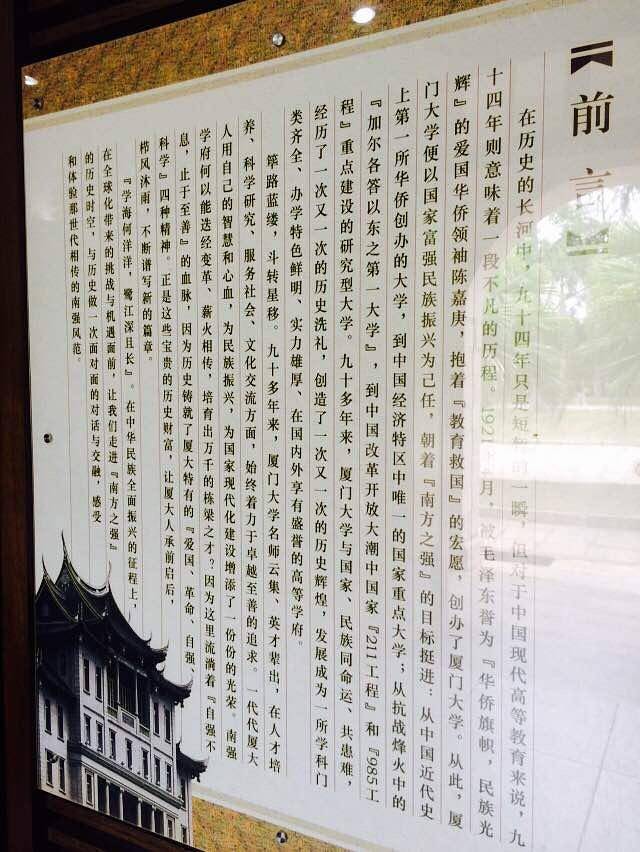 前言
在历史的长河中，九十四年只是短短的一瞬，但对于中国现代高等教育来说，九
十四年则意味着一段不凡的历程。1921年 月，被毛泽东誉为『华侨旗帜，民族光
辉』的爱国华侨领袖陈嘉庚，抱着『教育救国』的宏愿，创办了厦门大学。从此，厦
门大学便以国家富强民族振兴为己任，朝着『南方之强』的目标挺进：从中国近代史
上第一所华侨创办的大学，到中国经济特区中唯一的国家重点大学；从抗战烽火中的
『加尔各答以东之第一大学』，到中国改革开放大潮中国家『211工程』和『985工
程』重点建设的研究型大学。九十多年来，厦门大学与国家、民族同命运、共患难，
经历了一次又一次的历史洗礼，创造了一次又一次的历史辉煌，发展成为一所学科门
类齐全、办学特色鲜明、实力雄厚、在国内外享有盛誉的高等学府。
筚路蓝缕，斗转星移。九十多年来，厦门大学名师云集、英才辈出，在人才培
养、科学研究、服务社会、文化交流方面，始终着力于卓越至善的追求。一代代厦大
人用自己的智慧和心血，为民族振兴，为国家现代化建设增添了一份份的光荣。南强
学府何以能迭经变革、薪火相传，培育出万千的栋梁之才？因为这里流淌着『自强不
息，止于至善』的血脉，因为历史铸就了厦大特有的『爱国、革命、自强、
科学』四种精神。正是这些宝贵的历史财富，让厦大人承前启后，
栉风沐雨，不断谱写新的篇章。
『学海何洋洋，鹭江深且长』。在中华民族全面振兴的征程上，
在全球化带来的挑战与机遇面前，让我们走进『南方之强』
的历史时空，与历史做一次面对面的对话与交融，感受
和体验那世代相传的南强风范。